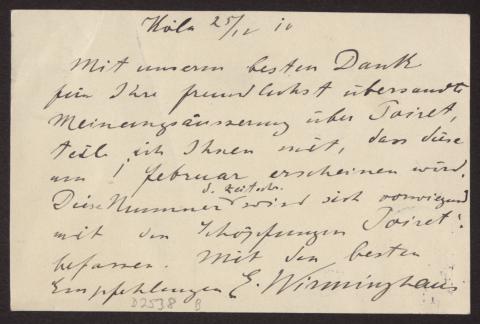 Köln 25/IV 10
Mit unserm besten Dank
für Ihre freundlichst übersandte
Meinungsäusserung über Poiret,
teile ich Ihnen mit, dass diese
am 1 februar erscheinen wird.
Diese Nummer d. Zeitschr. wird sich vorwiegend
mit den Schöpfungen Poiret's
befassen. Mit den besten
Empfehlungen E. Wirminghaus
D2538 B